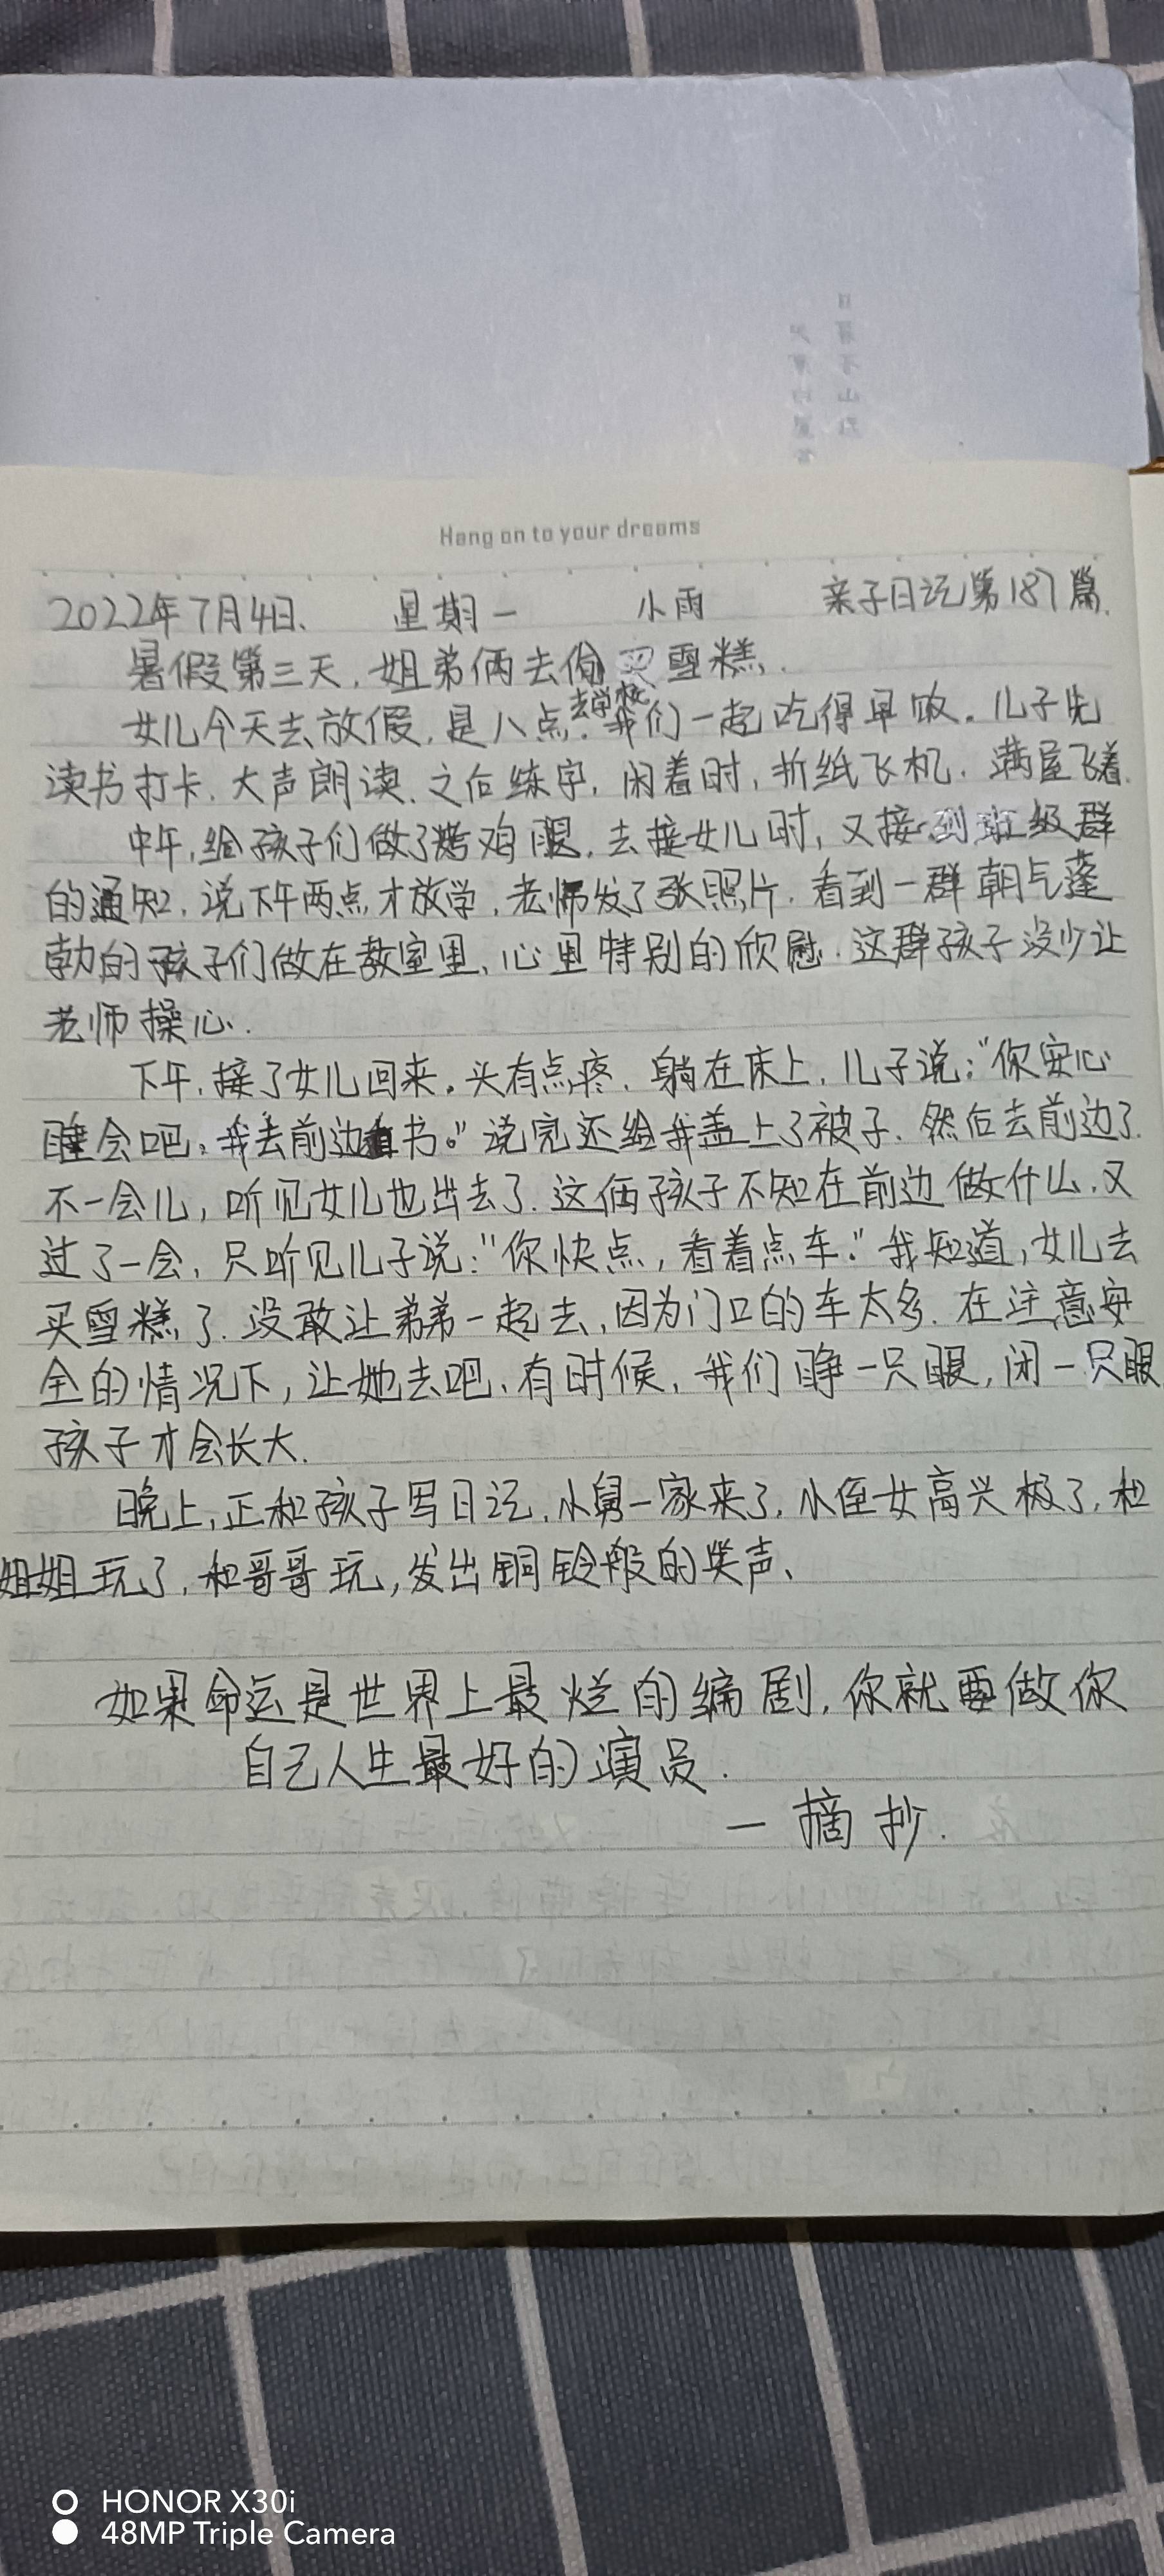 Hang on to your dreams
2022年7月4日、 星期一 小雨 亲子日记第187篇.
暑假第三天,姐弟俩去偷买雪糕.
去学校
女儿今天去放假,是八点.我们一起吃得早饭。儿子先
读书打卡.大声朗读.之后练字,闲着时,折纸飞机.满屋飞着.
中午,给孩子们做了烤鸡腿.去接女儿时,又接到班级群
的通知,说下午两点才放学,老师发了张照片.看到一群朝气蓬
勃的孩子们做在教室里,心里特别的欣慰.这群孩子没少让
老师操心.
下午,接了女儿回来。头有点疼.躺在床上,儿子说:“你安心
睡会吧,我去前边看书。”说完还给我盖上了被子.然后去前边了.
不一会儿,听见女儿也出去了.这俩孩子不知在前边做什么.又
过了一会,只听见儿子说:“你快点,看着点车.”我知道,女儿去
买雪糕了.没敢让弟弟一起去,因为门口的车太多.在注意安
全的情况下,让她去吧.有时候,我们睁一只眼,闭一只眼
孩子才会长大.
晚上,正和孩子写日记,小舅一家来了,小侄女高兴极了,和
姐姐玩了,和哥哥玩,发出铜铃般的笑声、
如果命运是世界上最烂的编剧,你就要做你
自己人生最好的演员.
一摘抄.
HONOR X30i
48MP Triple Camera